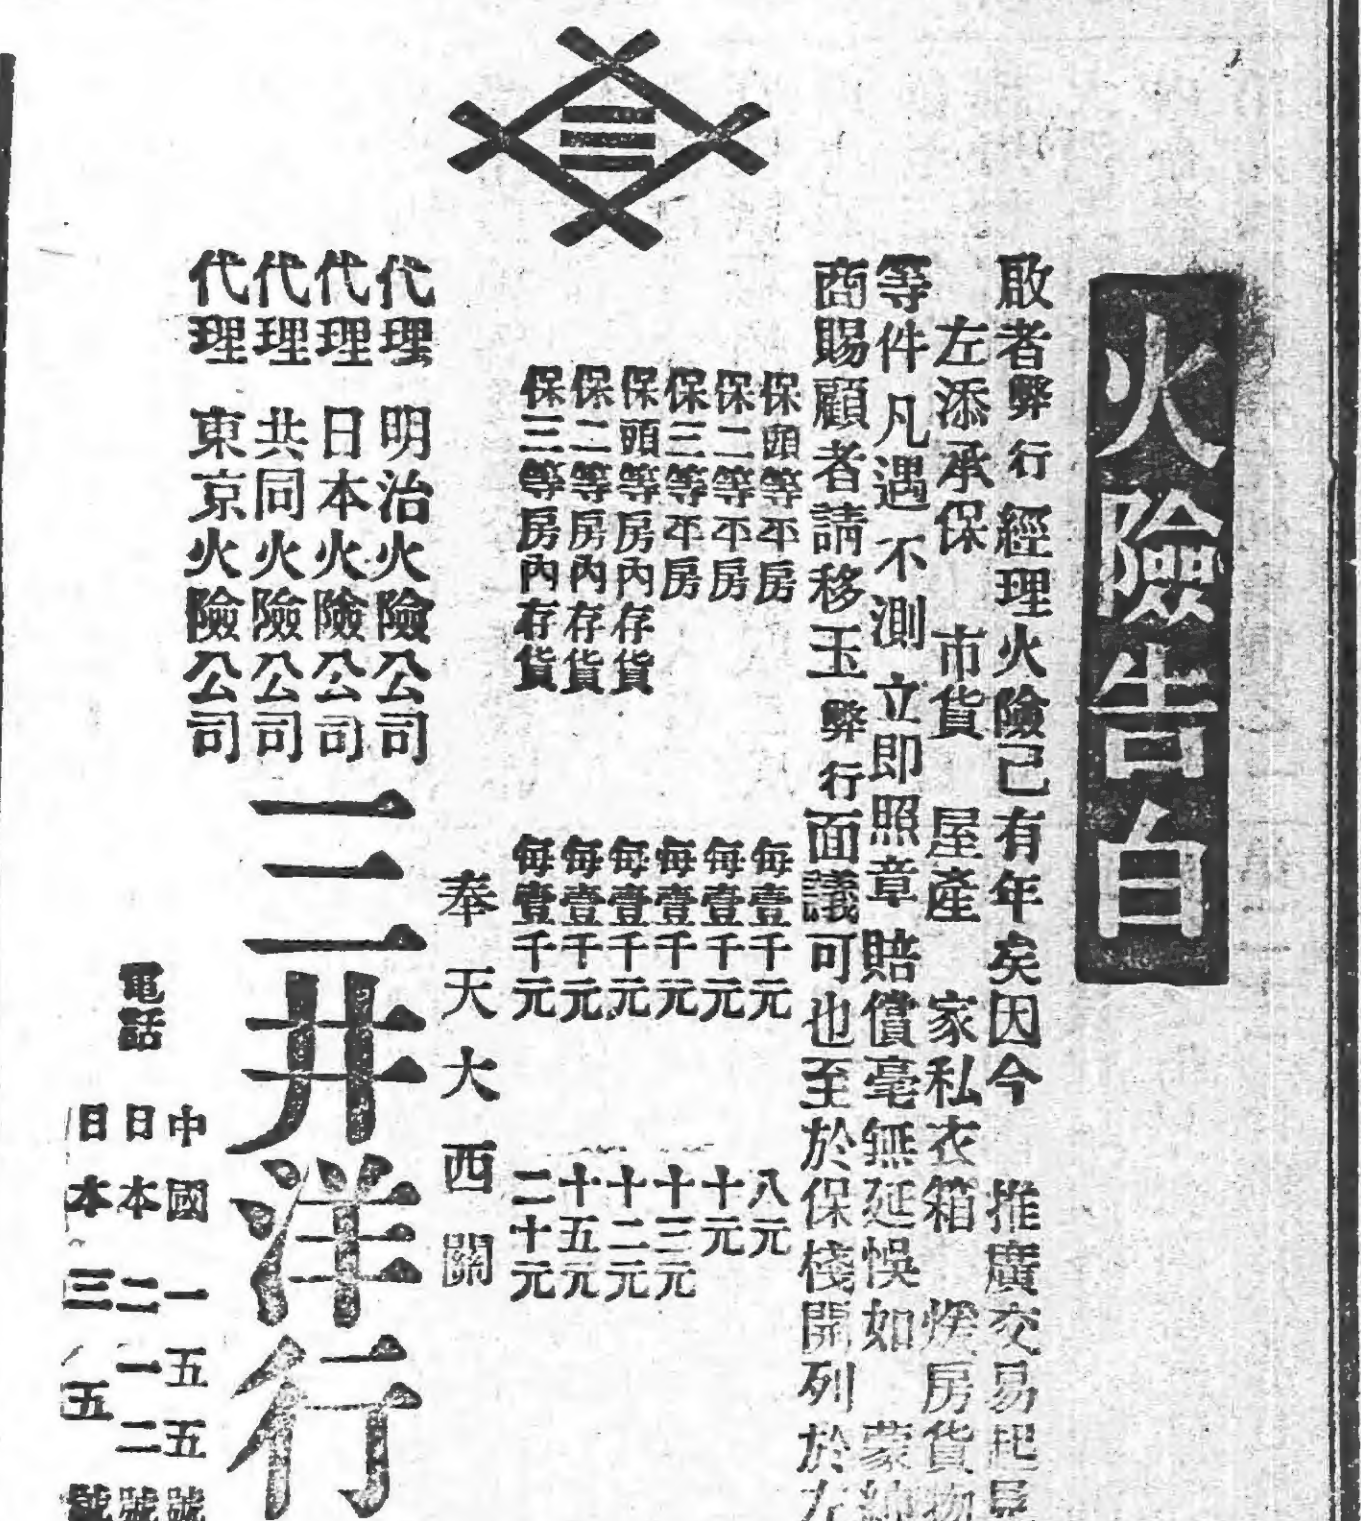 火險告白
啟者弊行經理火險已有年矣因今推廣交易起見
左添承保市貨屋產家私衣箱煖房貨物
等件凡遇不測立即照章賠償毫無延悞如蒙紳
商賜顧者請移玉弊行面議可也至於保棧開列於左
保頭等平房每壹千元八元
保二等平房每壹千元十元
保三等平房每壹千元十三元
保頭等房內存貨每壹千元十二元
保二等房內存貨每壹千元十五元
保三等房內存貨每壹千元二十元
奉天大西關
代理明治火險公司
代理日本火險公司
代理共同火險公司
代理東京火險公司
三井洋行
電話
中國一五五號
日本二一二號
日本三五號